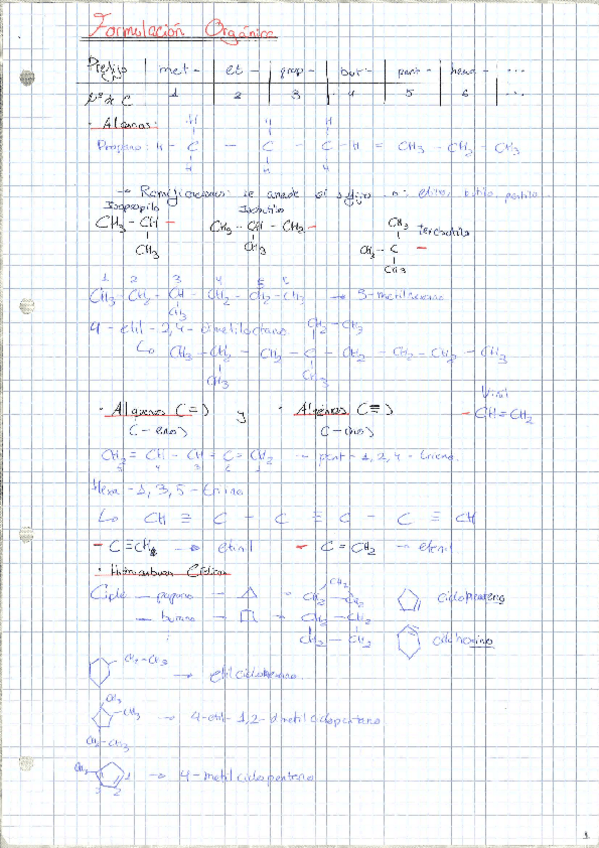 Formulación Orgánica
Prefijo | met- | et- | prop- | but- | pent- | hexa- | ...
Nº de C | 1 | 2 | 3 | 4 | 5 | 6 | ...
· Alcanos:
H H H
Propano: H - C - C - C - H = CH3 - CH2 - CH3
H H H
→ Ramificaciones: se añade el sufijo
Isopropilo Isobutilo
CH3 - CH - CH3 - CH - CH2 - CH3
CH3 CH3 CH3 - C - Tercbutilo
CH3
1 2 3 4 5 6
CH3 - CH2 - CH - CH2 - CH2 - CH3 → 3-metilhexano
CH3
4-etil-2,4-dimetiloctano CH2 - CH3
CH3 - CH2 - CH2 - C - CH2 - CH2 - CH2 - CH3
CH3 CH3
· Alquenos (C=) y · Alquinos (C≡)
(-eno) (-ino)
- CH=CH2
CH2 = CH - CH = C = CH2 → pent-1,2,4-trieno.
5 4 3 2 1
Hexa-1,3,5-triino
CH ≡ C - C ≡ C - C ≡ CH
- C≡CH → etinil - C=CH2 → etenil
· Hidrocarburos Cíclicos
Ciclo — propano → CH2 CH2 CH2
— butano → CH2 - CH2
CH2 - CH2
CH2-CH3 → etilciclohexano
CH3
CH3 → 4-etil-1,2-dimetilciclopentano
CH2-CH3
CH3 1 → 4-metilciclopenteno
3 2
1